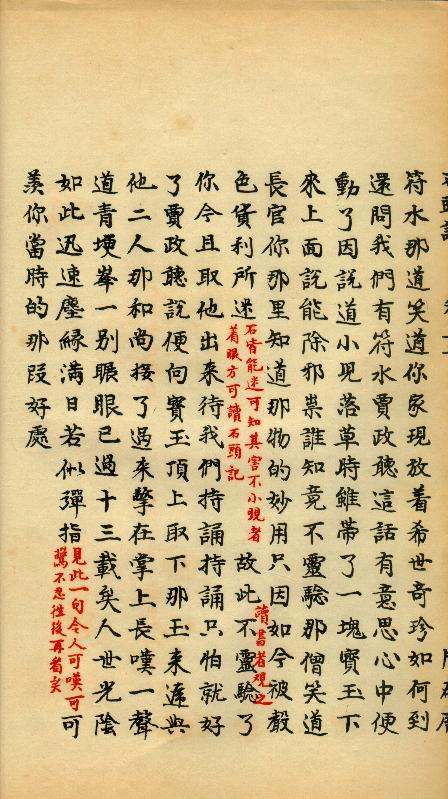 符水那道笑道你家現放着希世奇珍如何到
還問我們有符水賈政聽這話有意思心中便
動了因說道小兒落草時雖帶了一塊寶玉下
來上面說能除邪祟誰知竟不靈驗那僧笑道
長官你那里知道那物的妙用只因如今被聲
讀書者觀之
色貨利所迷
石皆能迷可知其害不小覌者
着眼方可讀石頭記
故此不靈驗了
你今且取他出來待我們持誦持誦只怕就好
了賈政聽說便向寶玉頂上取下那玉來遞與
他二人那和尚接了過來擎在掌上長嘆一聲
道青埂峯一别眼已過十三載矣人世光陰
如此迅速塵縁滿日若似彈指
見此一句令人可嘆可
驚不忍徃後再看矣
可
羨你當時的那叚好處